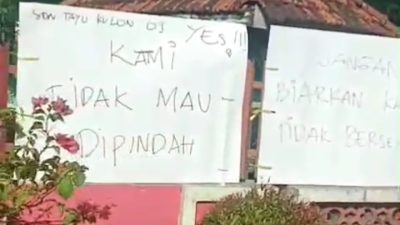 SDN TAYU KULON 03
YES!!!
KAMI
TIDAK MAU
DIPINDAH
JANGAN
BIARKAN
TIDAK